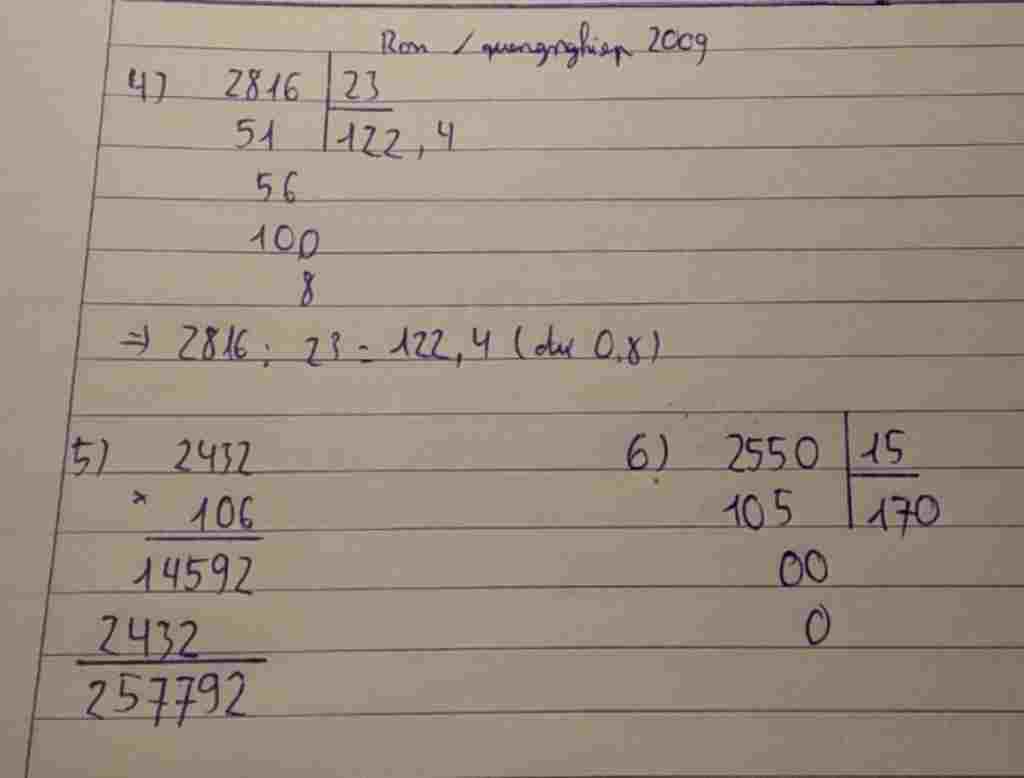 Ron / quangnghiep 2009
4) 2816 | 23
51 | 122,4
56
100
8
=> 2816 : 23 = 122,4 (dư 0,8)
5) 2432
× 106
14592
2432
257792
6) 2550 | 15
105 | 170
00
0